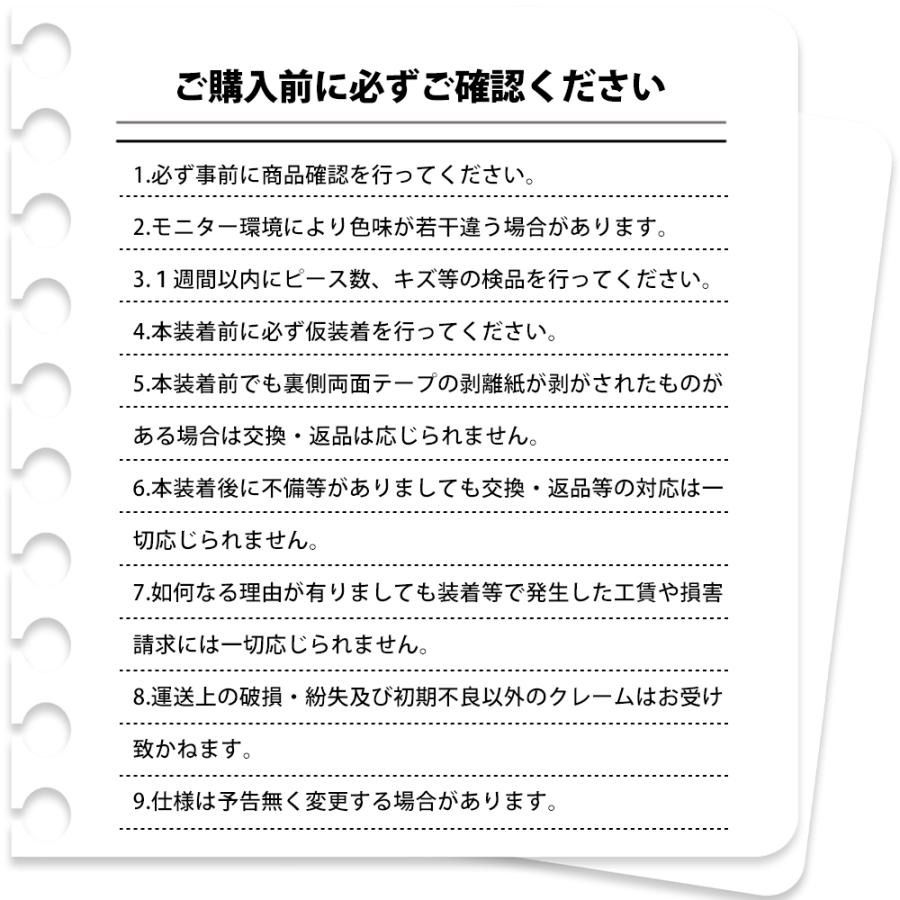 ご購入前に必ずご確認ください
1.必ず事前に商品確認を行ってください。
2.モニター環境により色味が若干違う場合があります。
3.１週間以内にピース数、キズ等の検品を行ってください。
4.本装着前に必ず仮装着を行ってください。
5.本装着前でも裏側両面テープの剥離紙が剥がされたものが
ある場合は交換・返品は応じられません。
6.本装着後に不備等がありましても交換・返品等の対応は一
切応じられません。
7.如何なる理由が有りましても装着等で発生した工賃や損害
請求には一切応じられません。
8.運送上の破損・紛失及び初期不良以外のクレームはお受け
致かねます。
9.仕様は予告無く変更する場合があります。